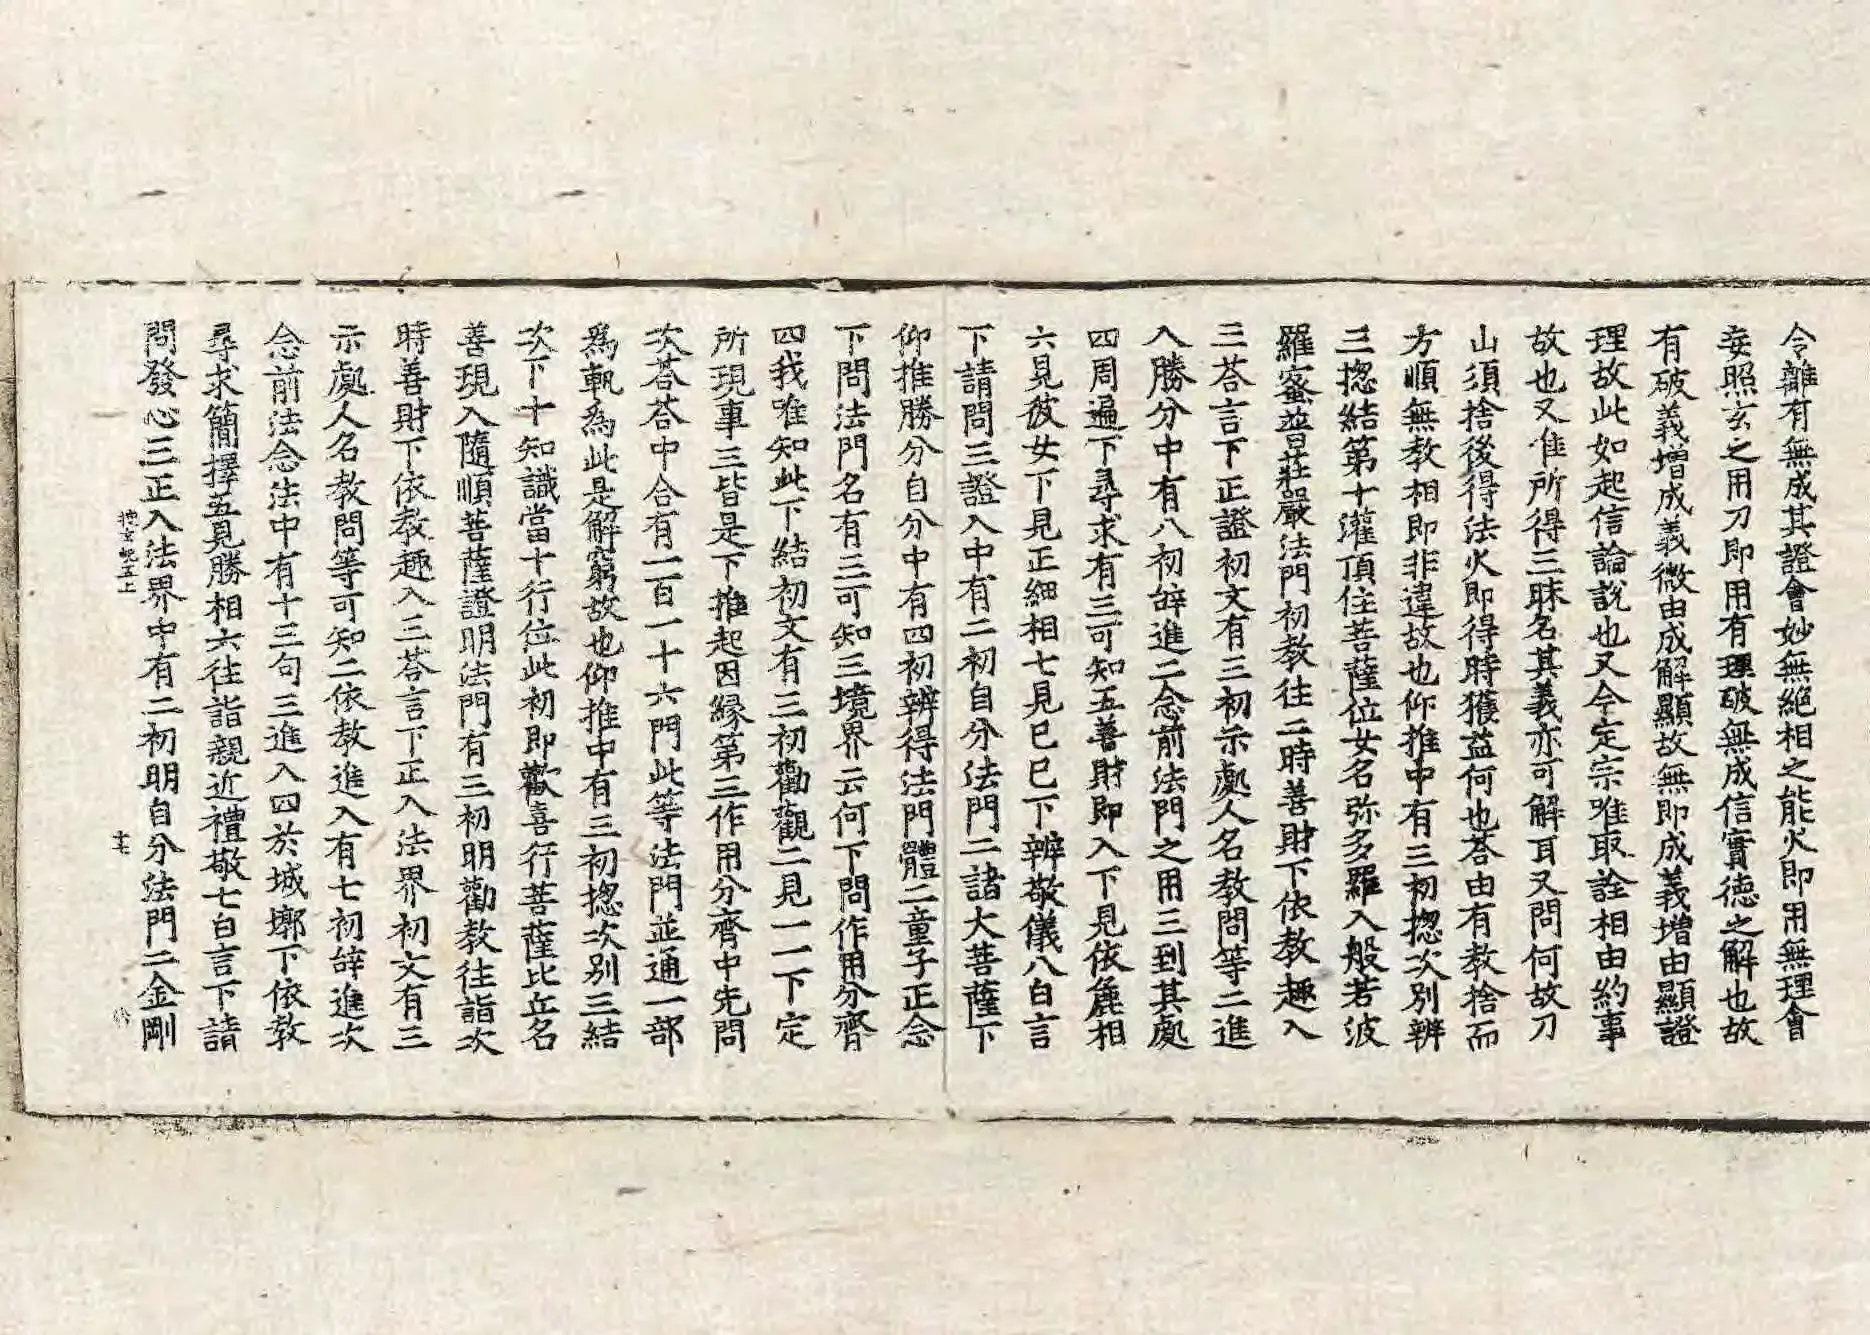 令離有無成其證會妙無絕相之能火即用無理會
妄照玄之用刀即用有理破無成信實德之解也故
有破義增成義微由成解顯故無即成義增由顯證
理故此如起信論說也又今定宗唯取詮相由約事
故也又准所得三昧名其義亦可解耳又問何故刀
山須捨後得法火即得時獲益何也荅由有教捨而
方順無教相即非違故也仰推中有三初揔次別辨
三揔結第十灌頂住菩薩位女名弥多羅入般若波
羅蜜並日莊嚴法門初教往二時善財下依教趣入
三荅言下正證初文有三初示處人名教問等二進
入勝分中有八初辝進二念前法門之用三到其處
四周遍下尋求有三可知五善財即入下見依麁相
六見彼女下見正細相七見已已下辨敬儀八白言
下請問三證入中有二初自分法門二諸大菩薩下
仰推勝分自分中有四初辨得法門體二童子正念
下問法門名有三可知三境界云何下問作用分齊
四我唯知此下結初文有三初勸觀二見一一下定
所現事三皆是下推起因緣第三作用分齊中先問
次荅荅中合有一百一十六門此等法門並通一部
為軌為此是解窮故也仰推中有三初揔次別三結
次下十知識當十行位此初即歡喜行菩薩比丘名
善現入隨順菩薩證明法門有三初明勸教往詣次
時善財下依教趣入三荅言下正入法界初文有三
示處人名教問等可知二依教進入有七初辝進次
念前法念法中有十三句三進入四於城墎下依教
尋求簡擇五見勝相六往詣親近禮敬七白言下請
問發心三正入法界中有二初明自分法門二金剛
十七